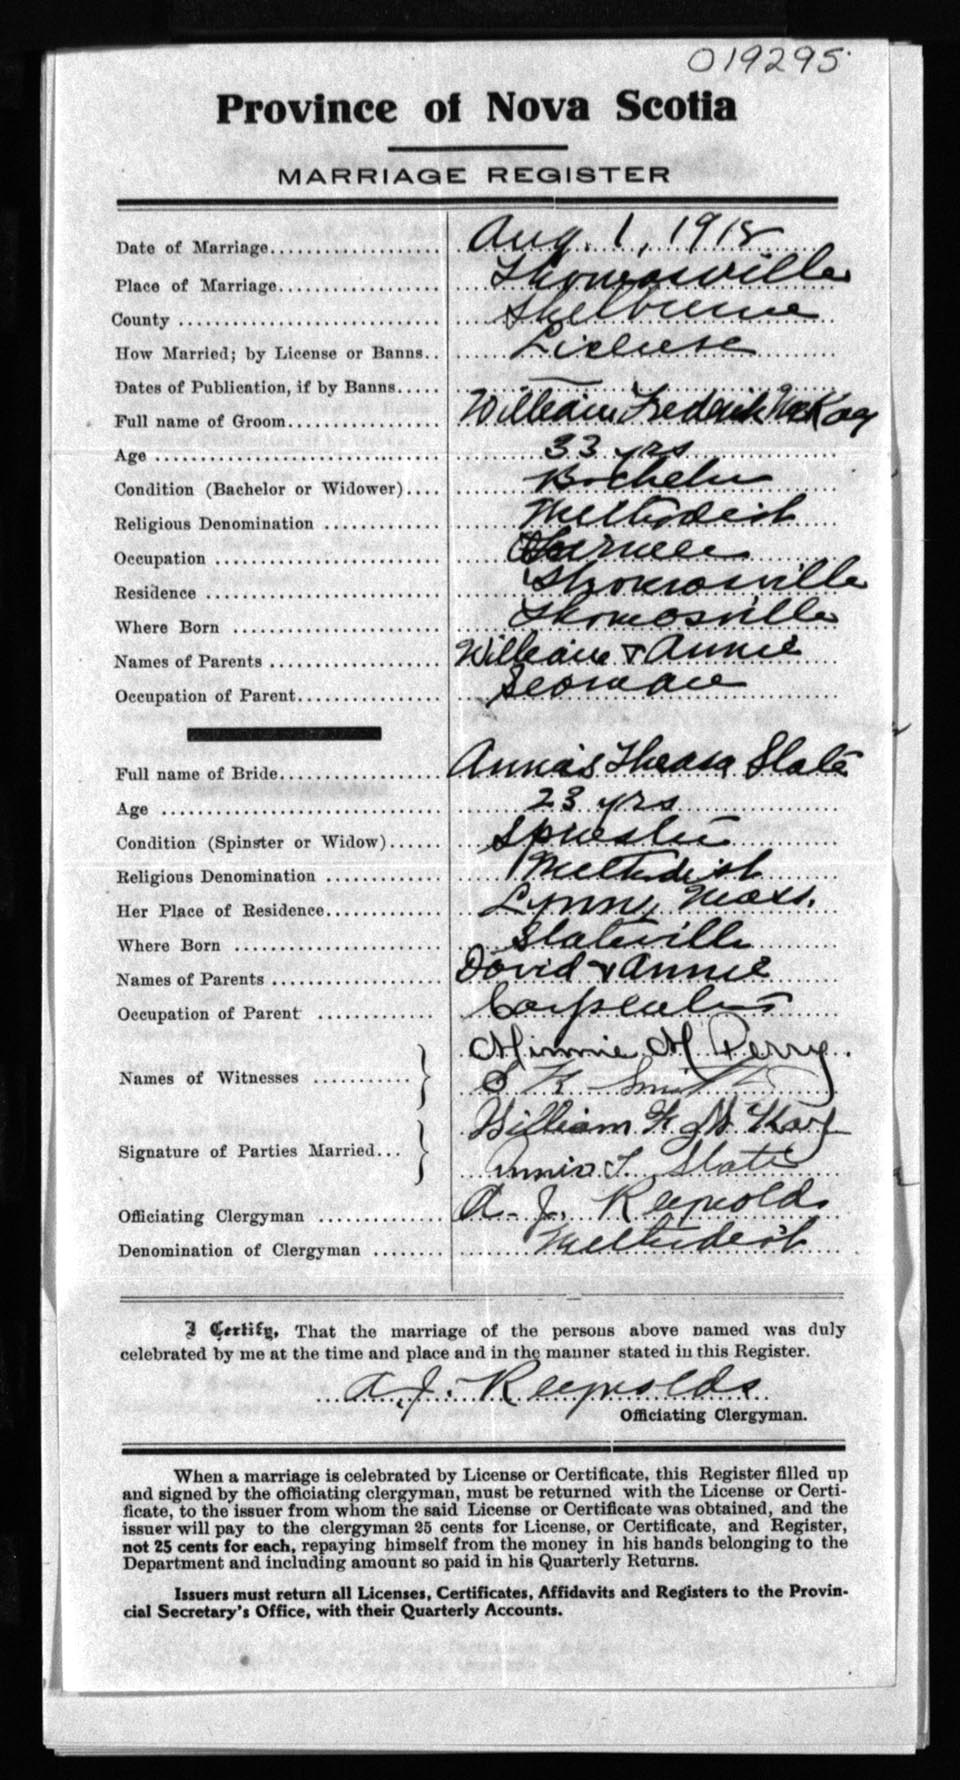 019295
Province of Nova Scotia
MARRIAGE REGISTER
Date of Marriage Aug. 1, 1918
Place of Marriage Thomasville
County Shelburne
How Married; by License or Banns License
Dates of Publication, if by Banns —
Full name of Groom William Frederick McKay
Age 33 yrs
Condition (Bachelor or Widower) Bachelor
Religious Denomination Methodist
Occupation
Residence Thomasville
Where Born Thomasville
Names of Parents William & Annie
Occupation of Parent Seaman
Full name of Bride Annas Theasa Slate
Age 23 yrs
Condition (Spinster or Widow) Spinster
Religious Denomination Methodist
Her Place of Residence Lynn, Mass.
Where Born Slateville
Names of Parents David & Annie
Occupation of Parent Carpenter
Names of Witnesses } Minnie M Perry.
K Smith
Signature of Parties Married } William F McKay
Annis T. Slate
Officiating Clergyman A. J. Reynolds
Denomination of Clergyman Methodist
I Certify, That the marriage of the persons above named was duly
celebrated by me at the time and place and in the manner stated in this Register.
A. J. Reynolds
Officiating Clergyman.
When a marriage is celebrated by License or Certificate, this Register filled up
and signed by the officiating clergyman, must be returned with the License or Certi-
ficate, to the issuer from whom the said License or Certificate was obtained, and the
issuer will pay to the clergyman 25 cents for License, or Certificate, and Register,
not 25 cents for each, repaying himself from the money in his hands belonging to the
Department and including amount so paid in his Quarterly Returns.
Issuers must return all Licenses, Certificates, Affidavits and Registers to the Provin-
cial Secretary's Office, with their Quarterly Accounts.